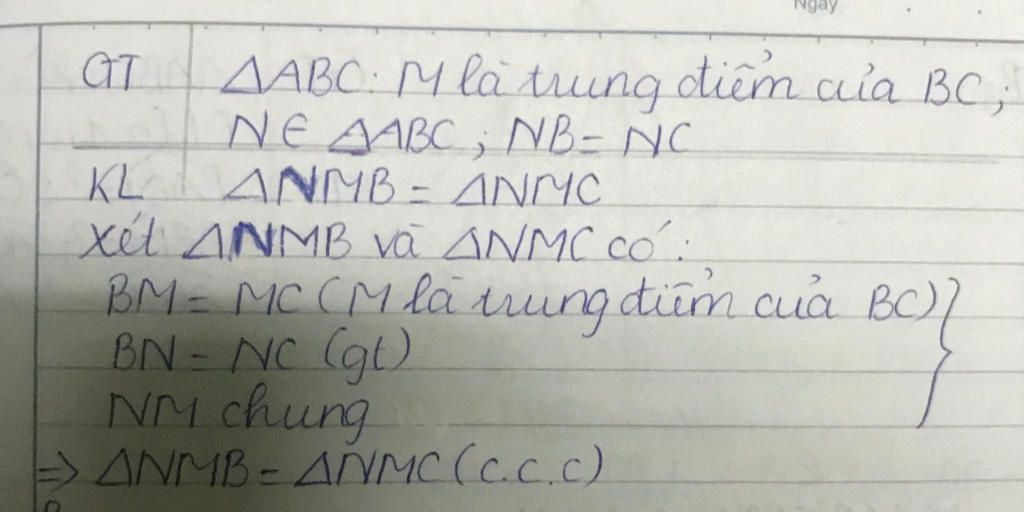 Ngày
GT ΔABC: M là trung điểm của BC;
N ∈ ΔABC; NB = NC
KL ΔNMB = ΔNMC
Xét ΔNMB và ΔNMC có:
BM = MC (M là trung điểm của BC) }
BN = NC (gt)
NM chung
=> ΔNMB = ΔNMC (c.c.c)